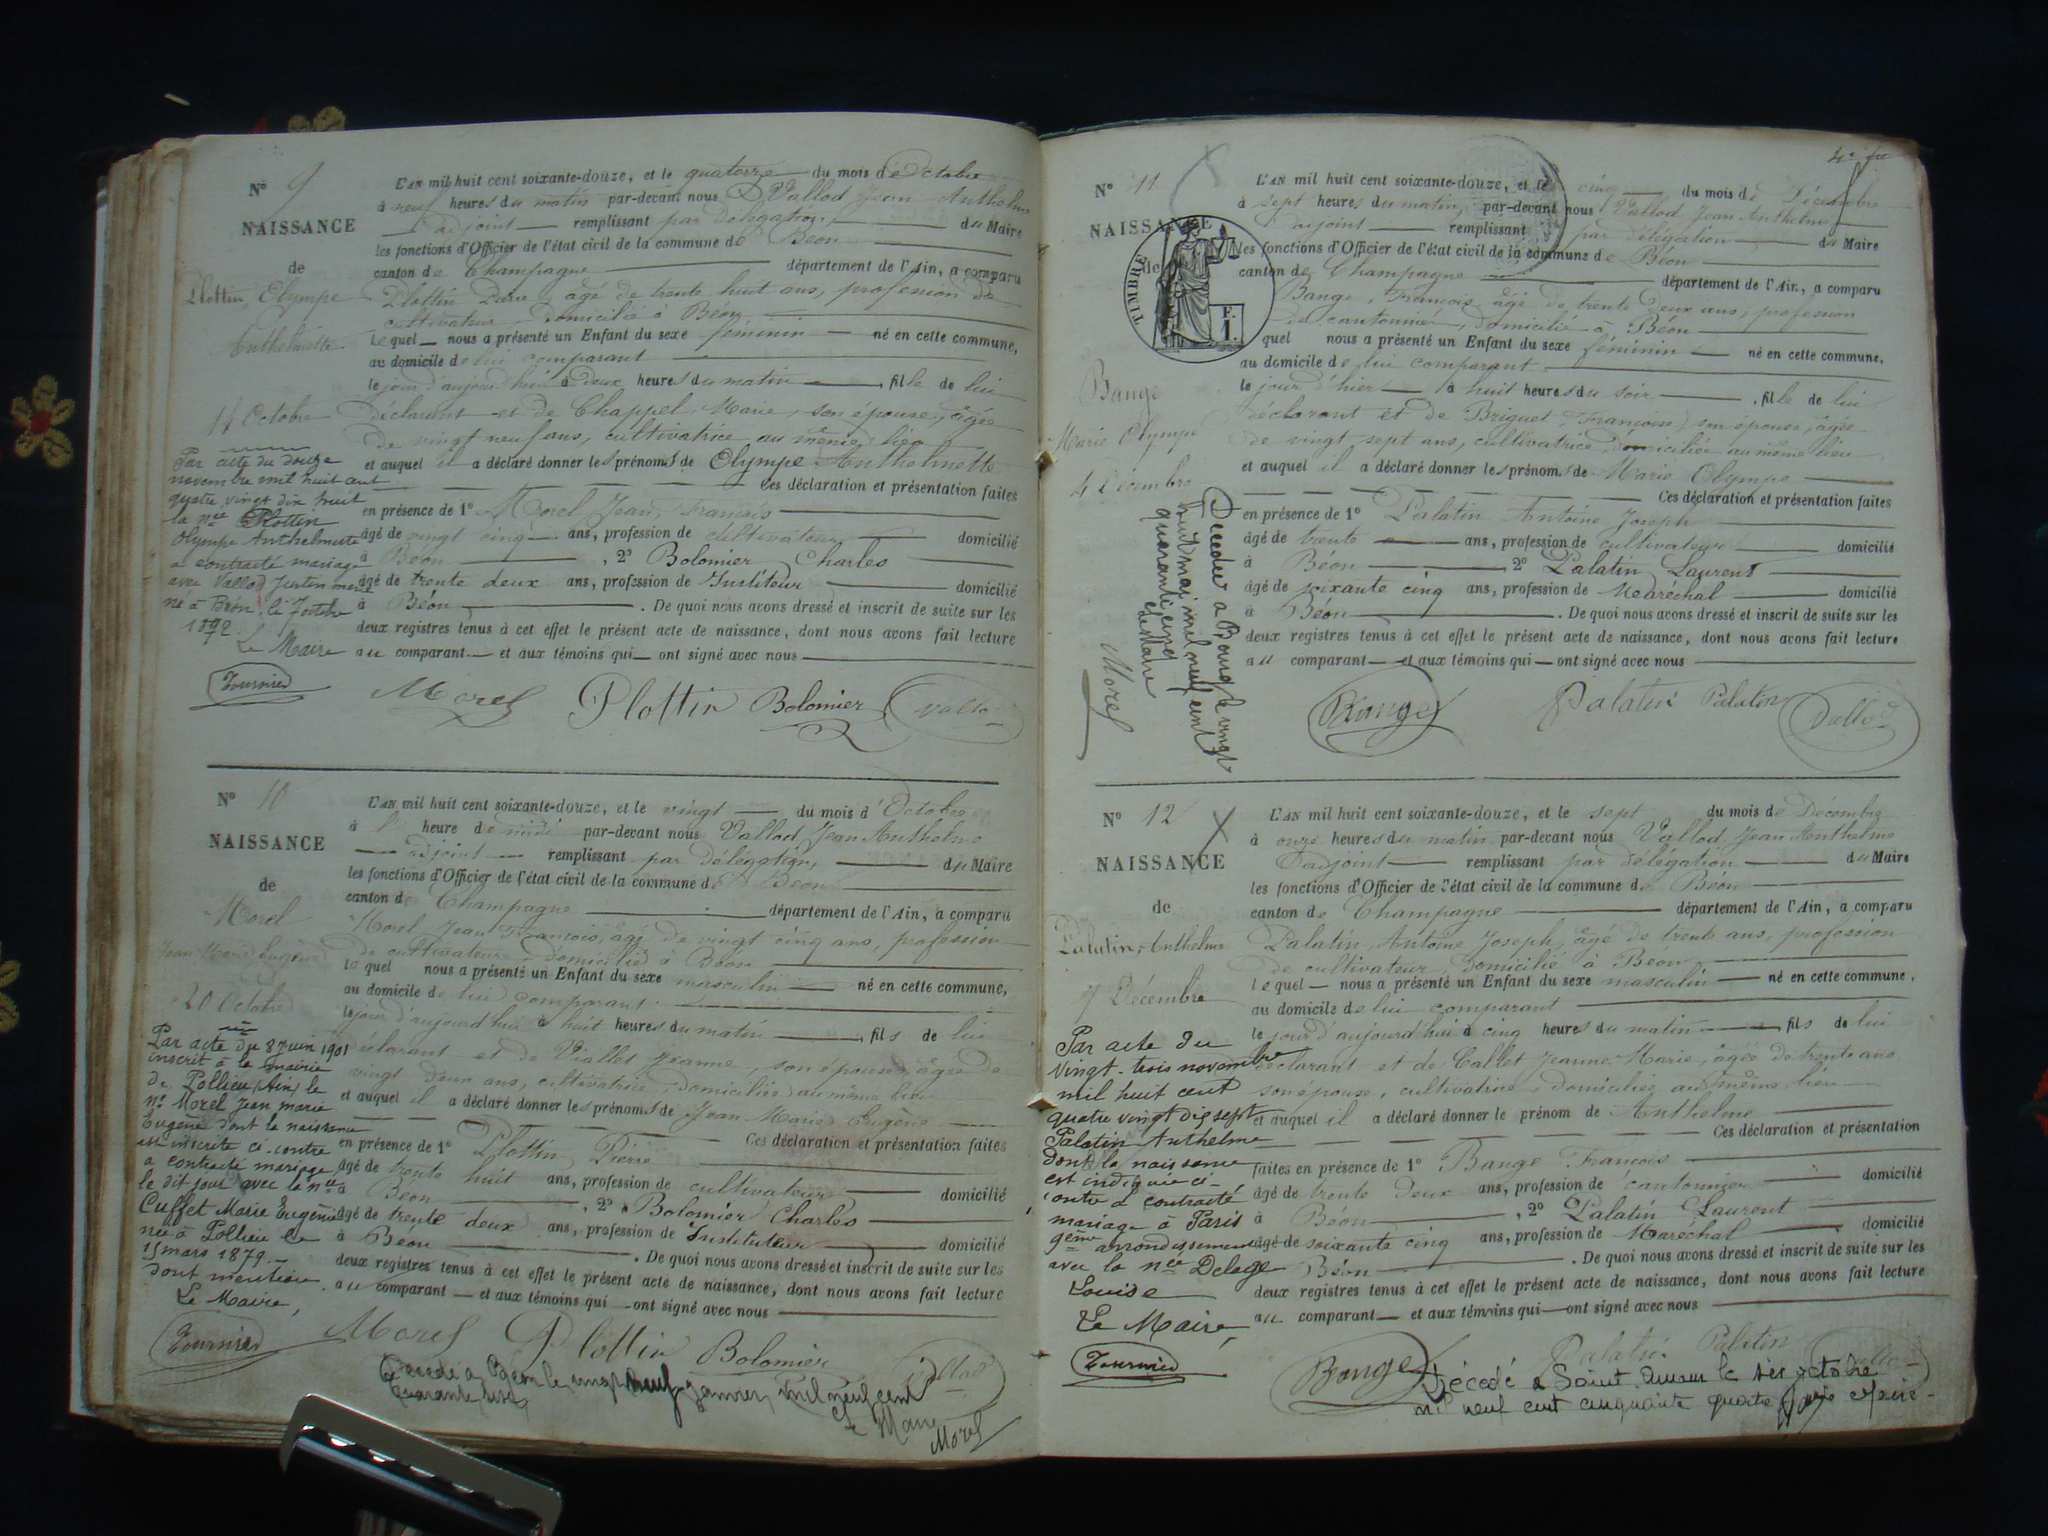 N° 9
NAISSANCE
de
Plottin, Olympe
Anthelmette
14 Octobre
Par acte du douze
novembre mil huit cent
quatre vingt dix huit
la née Plottin
Olympe Anthelmette
a contracté mariage
avec Vallod Justin
né à Béon le
Le Maire
Tournier
L'AN mil huit cent soixante-douze, et le quatorze du mois de Octobre
à neuf heures du matin par-devant nous Vallod Jean Anthelme
adjoint remplissant par délégation, du Maire
les fonctions d'Officier de l'état civil de la commune de Béon
canton de Champagne département de l'Ain, a comparu
Plottin Pierre, âgé de trente huit ans, profession de
cultivateur domicilié à Béon
lequel nous a présenté un Enfant du sexe féminin né en cette commune,
au domicile de lui comparant
le jour d'aujourd'hui à deux heures du matin, fille de lui
déclarant et de Chappel Marie, son épouse, âgée
de vingt neuf ans, cultivatrice au même lieu
et auquel il a déclaré donner les prénoms de Olympe Anthelmette
Ces déclaration et présentation faites
en présence de 1° Morel Jean François
âgé de vingt cinq ans, profession de cultivateur domicilié
à Béon, 2° Bolomier Charles
âgé de trente deux ans, profession de Instituteur domicilié
à Béon. De quoi nous avons dressé et inscrit de suite sur les
deux registres tenus à cet effet le présent acte de naissance, dont nous avons fait lecture
au comparant et aux témoins qui ont signé avec nous
Morel Plottin Bolomier Vallod
N° 10
NAISSANCE
de
Morel
Jean Marie Eugène
20 Octobre
Par acte du 8 juin 1901
inscrit à la mairie
de Pollieu (Ain) le
né Morel Jean Marie
Eugène dont la naissance
est inscrite ci-contre
a contracté mariage
le dit jour avec la née
Cuffet Marie Eugénie
née à Pollieu le
15 mars 1879.
Dont mention
Le Maire,
Tournier
L'AN mil huit cent soixante-douze, et le vingt du mois d'Octobre
à l' heure de midi par-devant nous Vallod Jean Anthelme
adjoint remplissant par délégation, du Maire
les fonctions d'Officier de l'état civil de la commune de Béon
canton de Champagne département de l'Ain, a comparu
Morel Jean François, âgé de vingt cinq ans, profession
de cultivateur, domicilié à Béon
lequel nous a présenté un Enfant du sexe masculin né en cette commune,
au domicile de lui comparant
le jour d'aujourd'hui à huit heures du matin, fils de lui
déclarant et de Viallet Jeanne, son épouse, âgée de
vingt deux ans, cultivatrice, domiciliée au même lieu
et auquel il a déclaré donner les prénoms de Jean Marie Eugène
Ces déclaration et présentation faites
en présence de 1° Plottin Pierre
âgé de trente huit ans, profession de cultivateur domicilié
à Béon, 2° Bolomier Charles
âgé de trente deux ans, profession de Instituteur domicilié
à Béon. De quoi nous avons dressé et inscrit de suite sur les
deux registres tenus à cet effet le présent acte de naissance, dont nous avons fait lecture
au comparant et aux témoins qui ont signé avec nous
Morel Plottin Bolomier Vallod
Décédé à Béon le vingt neuf janvier mil neuf cent
quarante
Le Maire
Morel
N° 11
NAISSANCE
de
TIMBRE
F.
1.
Bange
Marie Olympe
4 Décembre
Décédée à Bourg le vingt
huit mai mil neuf cent
quarante cinq
Le Maire
Morel
L'AN mil huit cent soixante-douze, et le cinq du mois de Décembre
à sept heures du matin, par-devant nous Vallod Jean Anthelme
adjoint remplissant par délégation du Maire
les fonctions d'Officier de l'état civil de la commune de Béon
canton de Champagne département de l'Ain, a comparu
Bange, François âgé de trente deux ans, profession
de cantonnier, domicilié à Béon
lequel nous a présenté un Enfant du sexe féminin né en cette commune,
au domicile de lui comparant
le jour d'hier à huit heures du soir, fille de lui
déclarant et de Briquet, Françoise, son épouse, âgée
de vingt sept ans, cultivatrice, domiciliée au même lieu
et auquel il a déclaré donner les prénoms de Marie Olympe
Ces déclaration et présentation faites
en présence de 1° Palatin Antoine Joseph
âgé de trente ans, profession de cultivateur domicilié
à Béon, 2° Palatin Laurent
âgé de soixante cinq ans, profession de Maréchal domicilié
à Béon. De quoi nous avons dressé et inscrit de suite sur les
deux registres tenus à cet effet le présent acte de naissance, dont nous avons fait lecture
au comparant et aux témoins qui ont signé avec nous
Bange Palatin Palatin Vallod
N° 12
NAISSANCE
de
Palatin, Anthelme
7 Décembre
Par acte du
vingt-trois novembre
mil huit cent
quatre vingt dix sept
Palatin Anthelme
dont la naissance
est indiquée ci-
contre a contracté
mariage à Paris
9ème arrondissement
avec la née Delage
Louise
Le Maire,
Tournier
L'AN mil huit cent soixante-douze, et le sept du mois de Décembre
à onze heures du matin par-devant nous Vallod Jean Anthelme
adjoint remplissant par délégation du Maire
les fonctions d'Officier de l'état civil de la commune de Béon
canton de Champagne département de l'Ain, a comparu
Palatin, Antoine Joseph, âgé de trente ans, profession
de cultivateur, domicilié à Béon
lequel nous a présenté un Enfant du sexe masculin né en cette commune,
au domicile de lui comparant
le jour d'aujourd'hui à cinq heures du matin, fils de lui
déclarant et de Callet Jeanne Marie, âgée de trente ans
son épouse, cultivatrice, domiciliée au même lieu
et auquel il a déclaré donner le prénom de Anthelme
Ces déclaration et présentation
faites en présence de 1° Bange François
âgé de trente deux ans, profession de cantonnier domicilié
à Béon, 2° Palatin Laurent
âgé de soixante cinq ans, profession de Maréchal, domicilié
à Béon. De quoi nous avons dressé et inscrit de suite sur les
deux registres tenus à cet effet le présent acte de naissance, dont nous avons fait lecture
au comparant et aux témoins qui ont signé avec nous
Bange Palatin Palatin Vallod
Décédé à Saint le six octobre
mil neuf cent cinquante quatre